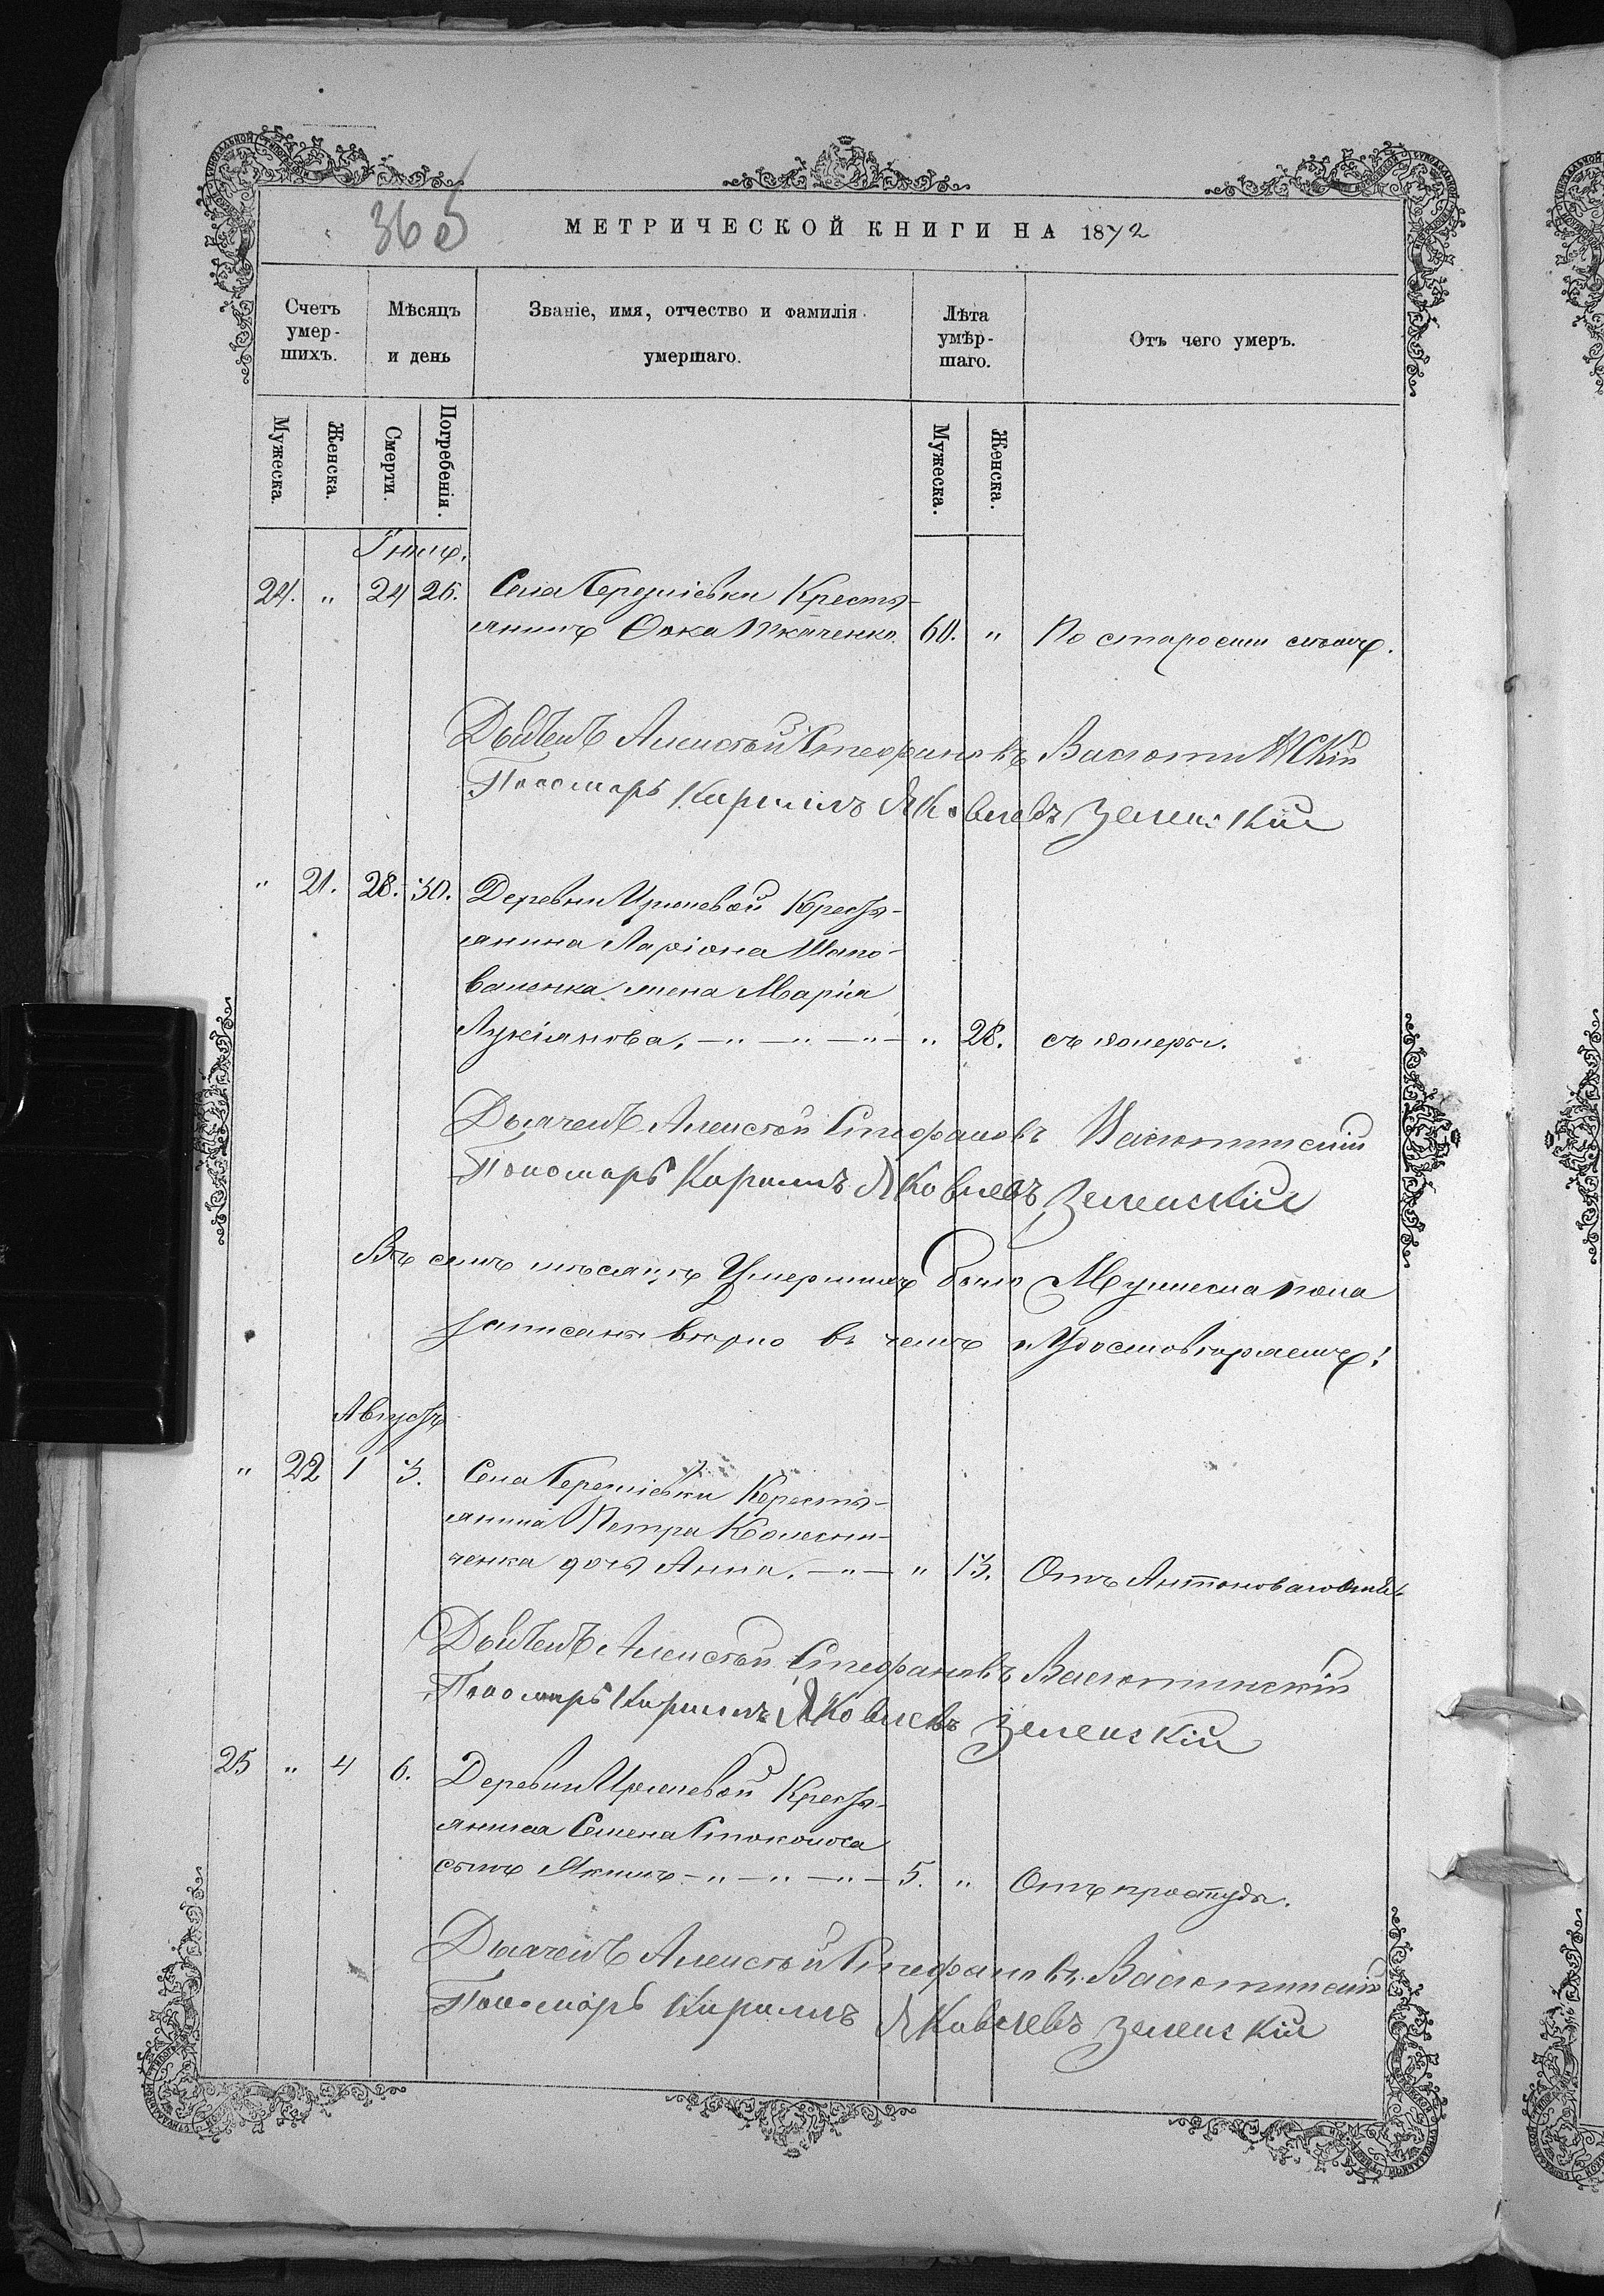 365
МЕТРИЧЕСКОЙ КНИГИ НА 1872
Счетъ умер-шихъ.
Мѣсяцъ и день
Званіе, имя, отчество и фамилія умершаго.
Лѣта умѣр-шаго.
Отъ чего умеръ.
Мужеска.
Женска.
Смерти.
Погребенія.
Мужеска.
Женска.
24. „ 24 26. Села Кресть-
янинъ Ѳока Ткаченко. 60. „ По старости
Дьячекъ Алексѣй Стефановъ Васютинскій
Пономарь Кирилъ Яковлевъ Зеленскій
„ 21. 28. 30. Деревни Кресть-
янина Ларіона Шапо-
валенка жена Марія
Лукіянова. – „ – „ – „ – „ 28. съ холеры.
Дьячекъ Алексѣй Стефановъ Васютинскій
Пономарь Кирилъ Яковлевъ Зеленскій
Въ семъ мѣсяцѣ Умершихъ было Мужеска пола
записаны вѣрно въ чемъ и Удостовѣряемъ!
Августъ
„ 22 1 3. Села Кресть-
янина Петра Колесни-
ченка дочь Анна. – „ – „ 13. Отъ Антонова
Дьячекъ Алексѣй Стефановъ Васютинскій
Пономарь Кирилъ Яковлевъ Зеленскій
25 „ 4 6. Деревни Кресть-
янина Семена
сынъ Якимъ – „ – „ – „ – 5. „ Отъ простуды.
Дьячекъ Алексѣй Стефановъ Васютинскій
Пономарь Кирилъ Яковлевъ Зеленскій